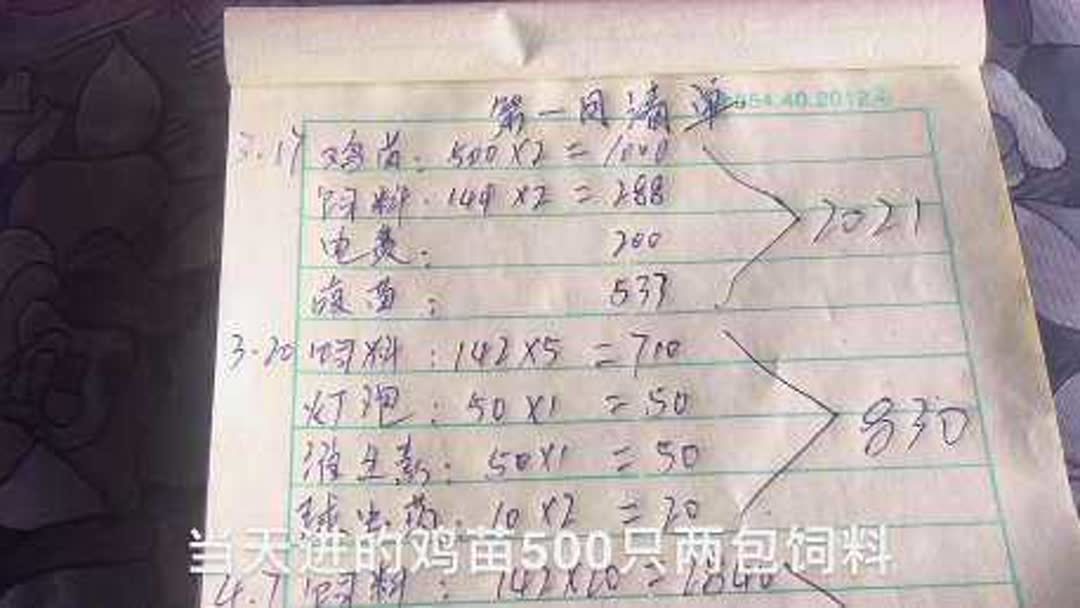 第一月清单
3.17 鸡苗: 500×2=1000
饲料: 144×2=288
电费: 200
疫苗: 533
2021
3.20 饲料: 142×5=700
灯泡: 50×1=50
维生素: 50×1=50
830
球虫药: 10×2=20
当天进的鸡苗500只两包饲料
4.7 饲料: